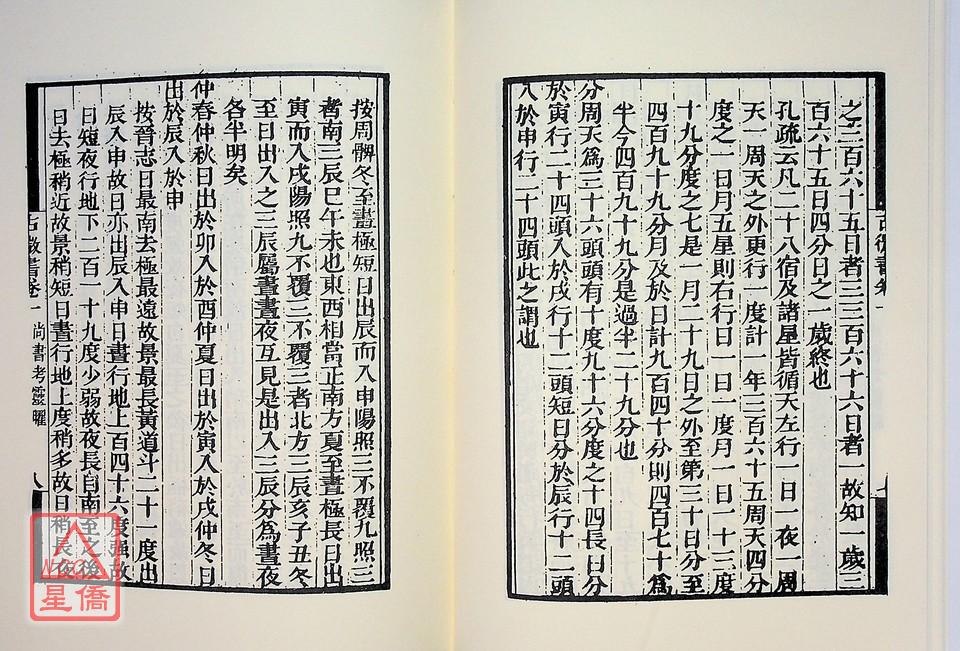 之三百六十五日者三三百六十六日者一故知一歲三
百六十五日四分日之一歲終也
孔疏云凡二十八宿及諸星皆循天左行一日一夜一周
天一周天之外更行一度計一年三百六十五周天四分
度之一日月五星則右行日一日一度月一日一十三度
十九分度之七是一月二十九日之外至第三十日分至
四百九十九分月及於日計九百四十分則四百七十爲
半今四百九十九分是過半二十九分也
分周天爲三十六頭頭有十度九十六分度之十四長日分
於寅行二十四頭入於戌行十二頭短日分於辰行十二頭
入於申行二十四頭此之謂也
按周髀冬至晝極短日出辰而入申陽照三不覆九照三
者南三辰巳午未也東西相當正南方夏至晝極長日出
寅而入戌陽照九不覆三不覆三者北方三辰亥子丑冬
至日出入之三辰屬晝晝夜互見是出入三辰分爲晝夜
各半明矣
仲春仲秋日出於卯入於酉仲夏日出於寅入於戌仲冬日
出於辰入於申
按晉志日最南去極最遠故景最長黃道斗二十一度出
辰入申故日亦出辰入申日晝行地上百四十六度強故
日短夜行地下二百一十九度少弱故夜長自南至之後
日去極稍近故景稍短日晝行地上度稍多故日稍長夜
古微書卷一 尚書考靈曜 八
星僑